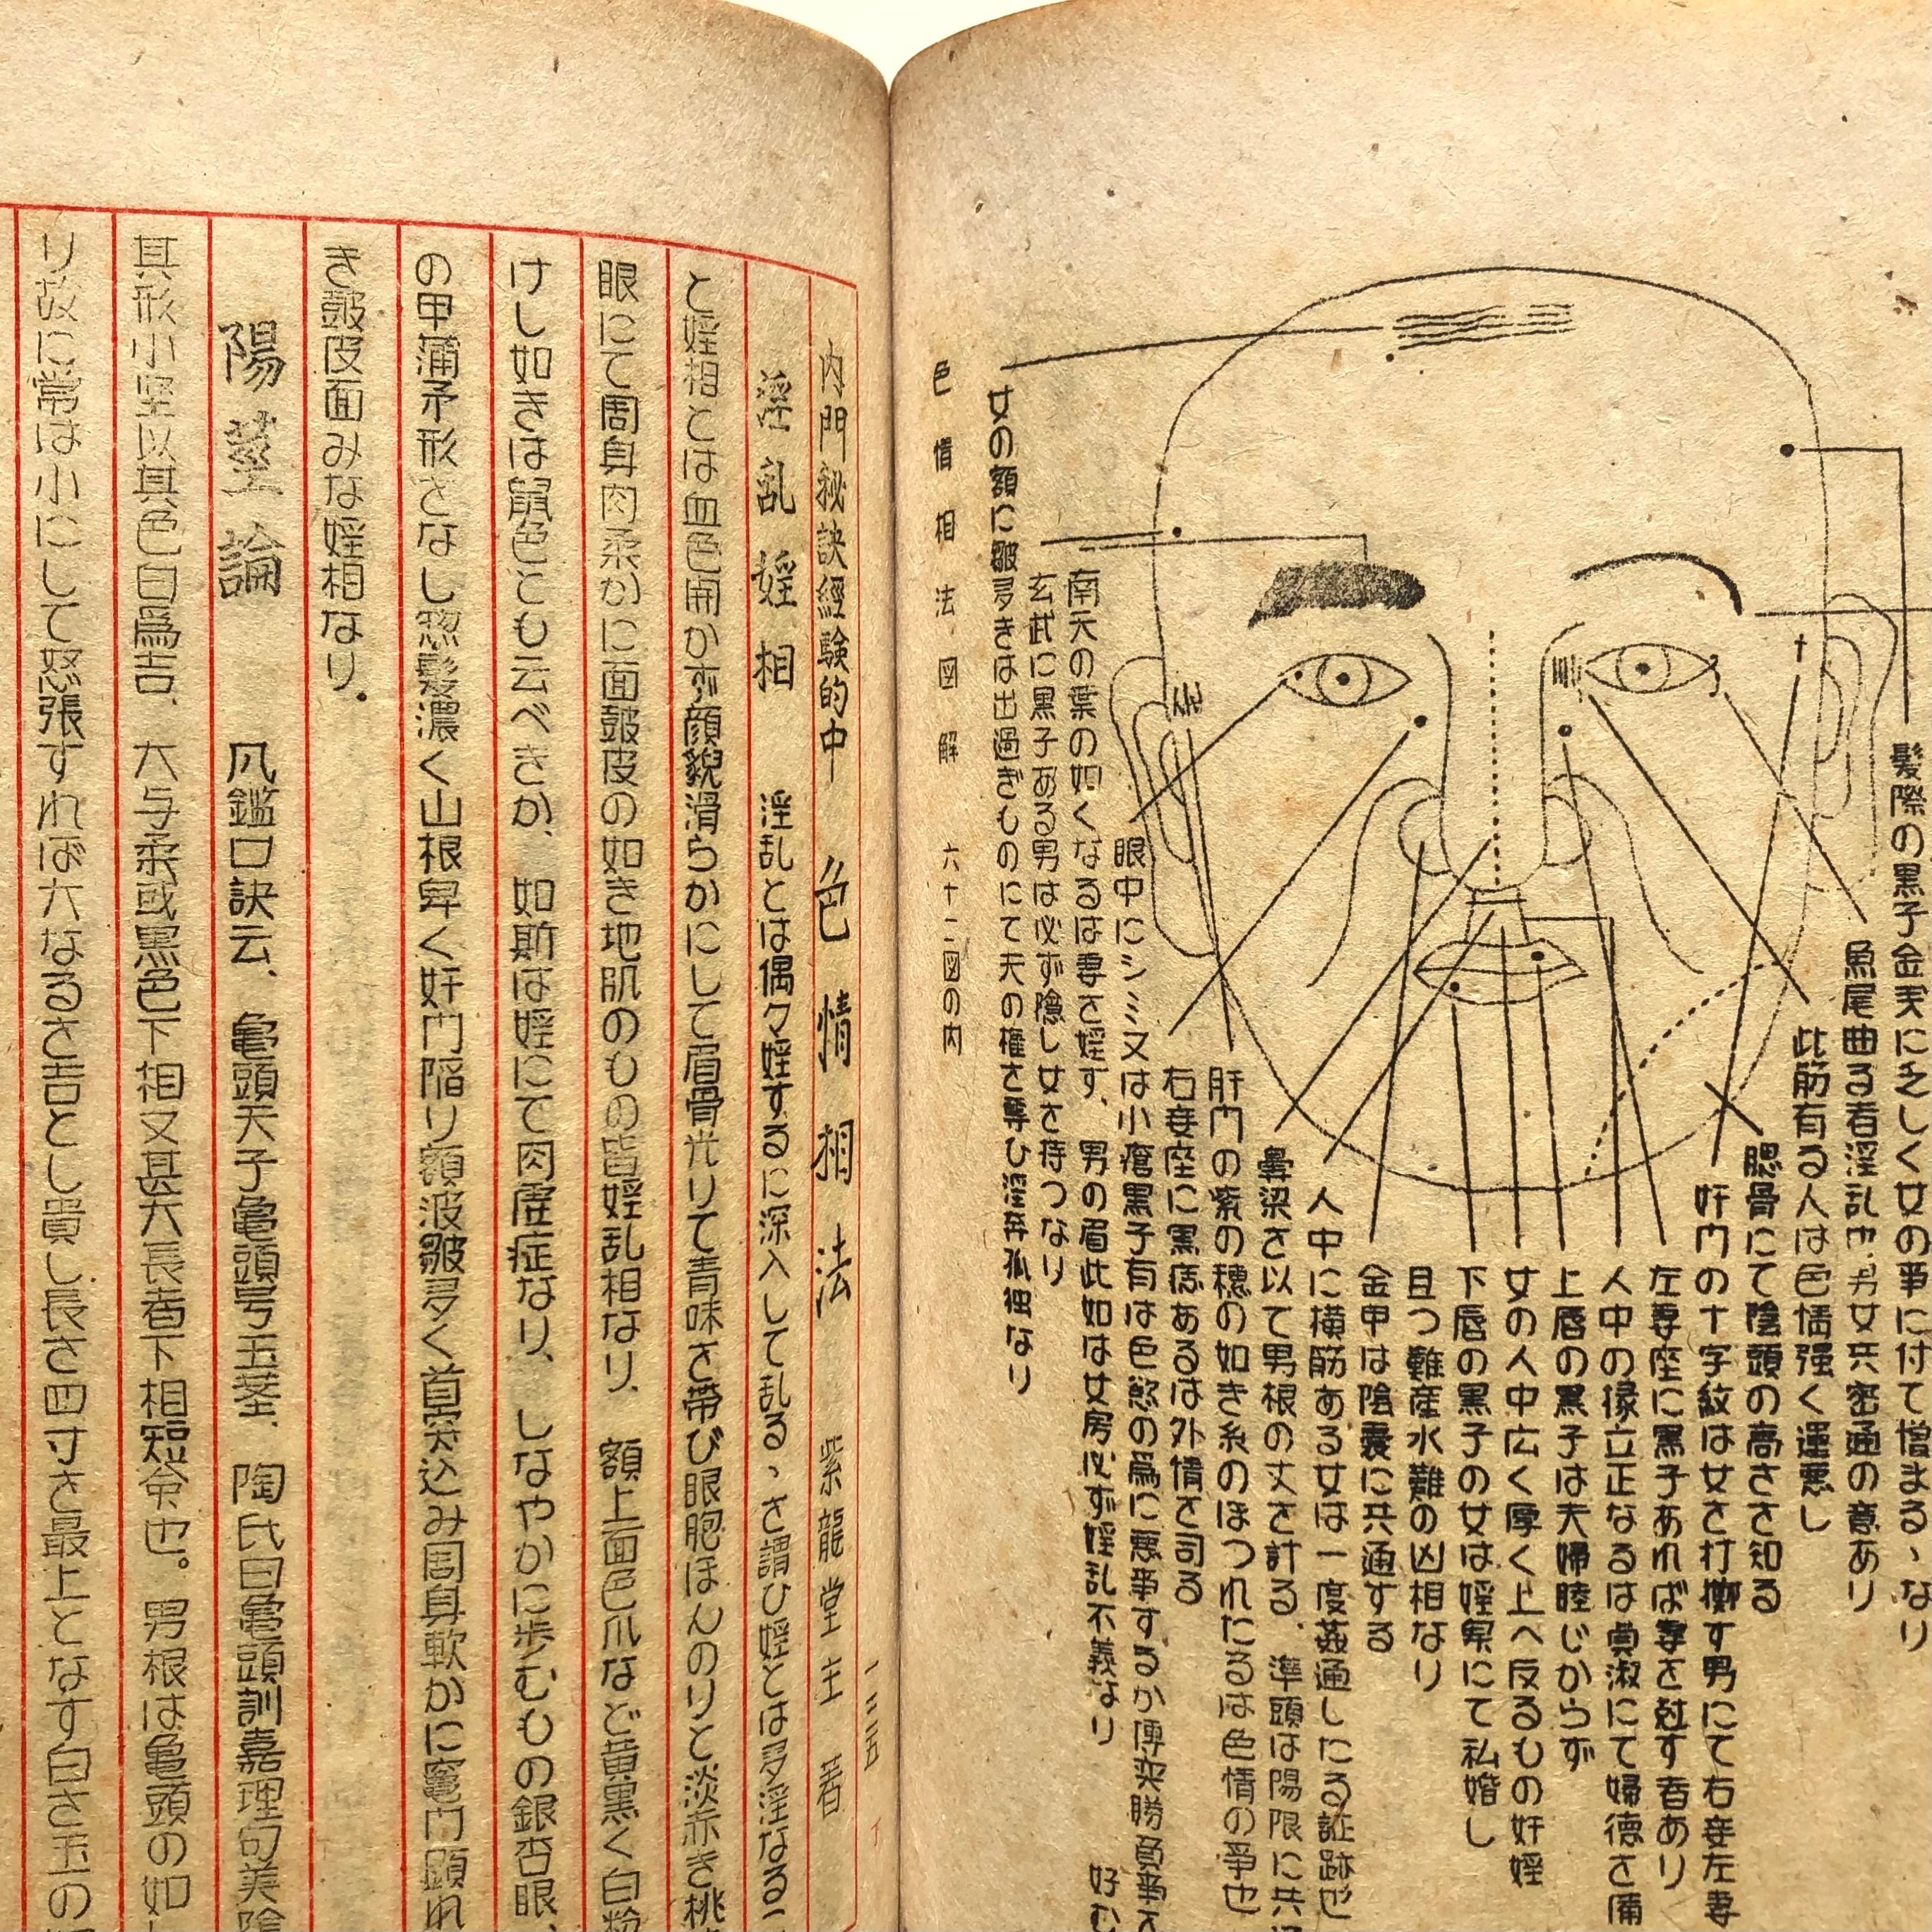 髪際の黒子金天に乏しく女の事に付て憎まるゝなり
魚尾曲る者淫乱也男女共密通の意あり
此筋有る人は色情强く運悪し
腮骨にて陰頭の高さを知る
奸門の十字紋は女を打擲す男にて右妾左妻
左妻座に黒子あれば妻を尅す者あり
人中の縁立正なるは貞淑にて婦徳を備
上唇の黒子は夫婦睦じからず
女の人中広く厚く上へ反るもの奸婬
下唇の黒子の女は婬奔にて私婚し
且つ難産水難の凶相なり
金甲は陰嚢に共通する
人中に横筋ある女は一度姦通しにる証跡也
鼻梁を以て男根の丈を計る、準頭は陽限に共
肝門の紫の穂の如き糸のほつれたるは色情の爭也
右妾座に黒痣あるは外情を司る
眼中にシミ又は小瘡黒子有は色慾の爲に悪事するか傳染勝負事を
好む
南天の葉の如くなるは妻を婬す、男の眉此如は女房必ず婬乱不義なり
玄武に黒子ある男は必ず隠し女を待つなり
女の額に皺多きは出過ぎものにて夫の權を奪ひ淫奔孤独なり
色情相法図解 六十二図の内
一三五
内門祕訣經驗的中 色情相法 紫龍堂主著
淫乱婬相 淫乱とは偶々婬するに深入して乱るゝを謂ひ婬とは多淫なるこ
と婬相とは血色開かず顔貌滑らかにして眉骨光りて青味を帯び眼胞ほんのりと淡赤き桃
眼にて周身肉柔かに面皷皮の如き地肌のもの皆婬乱相なり、額上面色爪など黄黒く白粉
けし如きは鼠色とも云べきか、如斯は婬にて肉虚症なり、しなやかに歩むもの銀杏眼、
の甲蒲矛形をなし惣髮濃く山根卑く奸門陥り額波皺多く首突込み周身軟かに竈門顕れ
き皷皮面みな婬相なり。
陽茎論 凡鑑口訣云、亀頭天子亀頭号玉茎、陶氏曰亀頭訓嘉理句美陰
其形小堅以其色白爲吉、大与柔或黒色下相又甚大長者下相短命也。男根は亀頭の如
り故に常は小にして怒張すれば大なるを吉とし貴し長さ四寸を最上となす白さ玉の